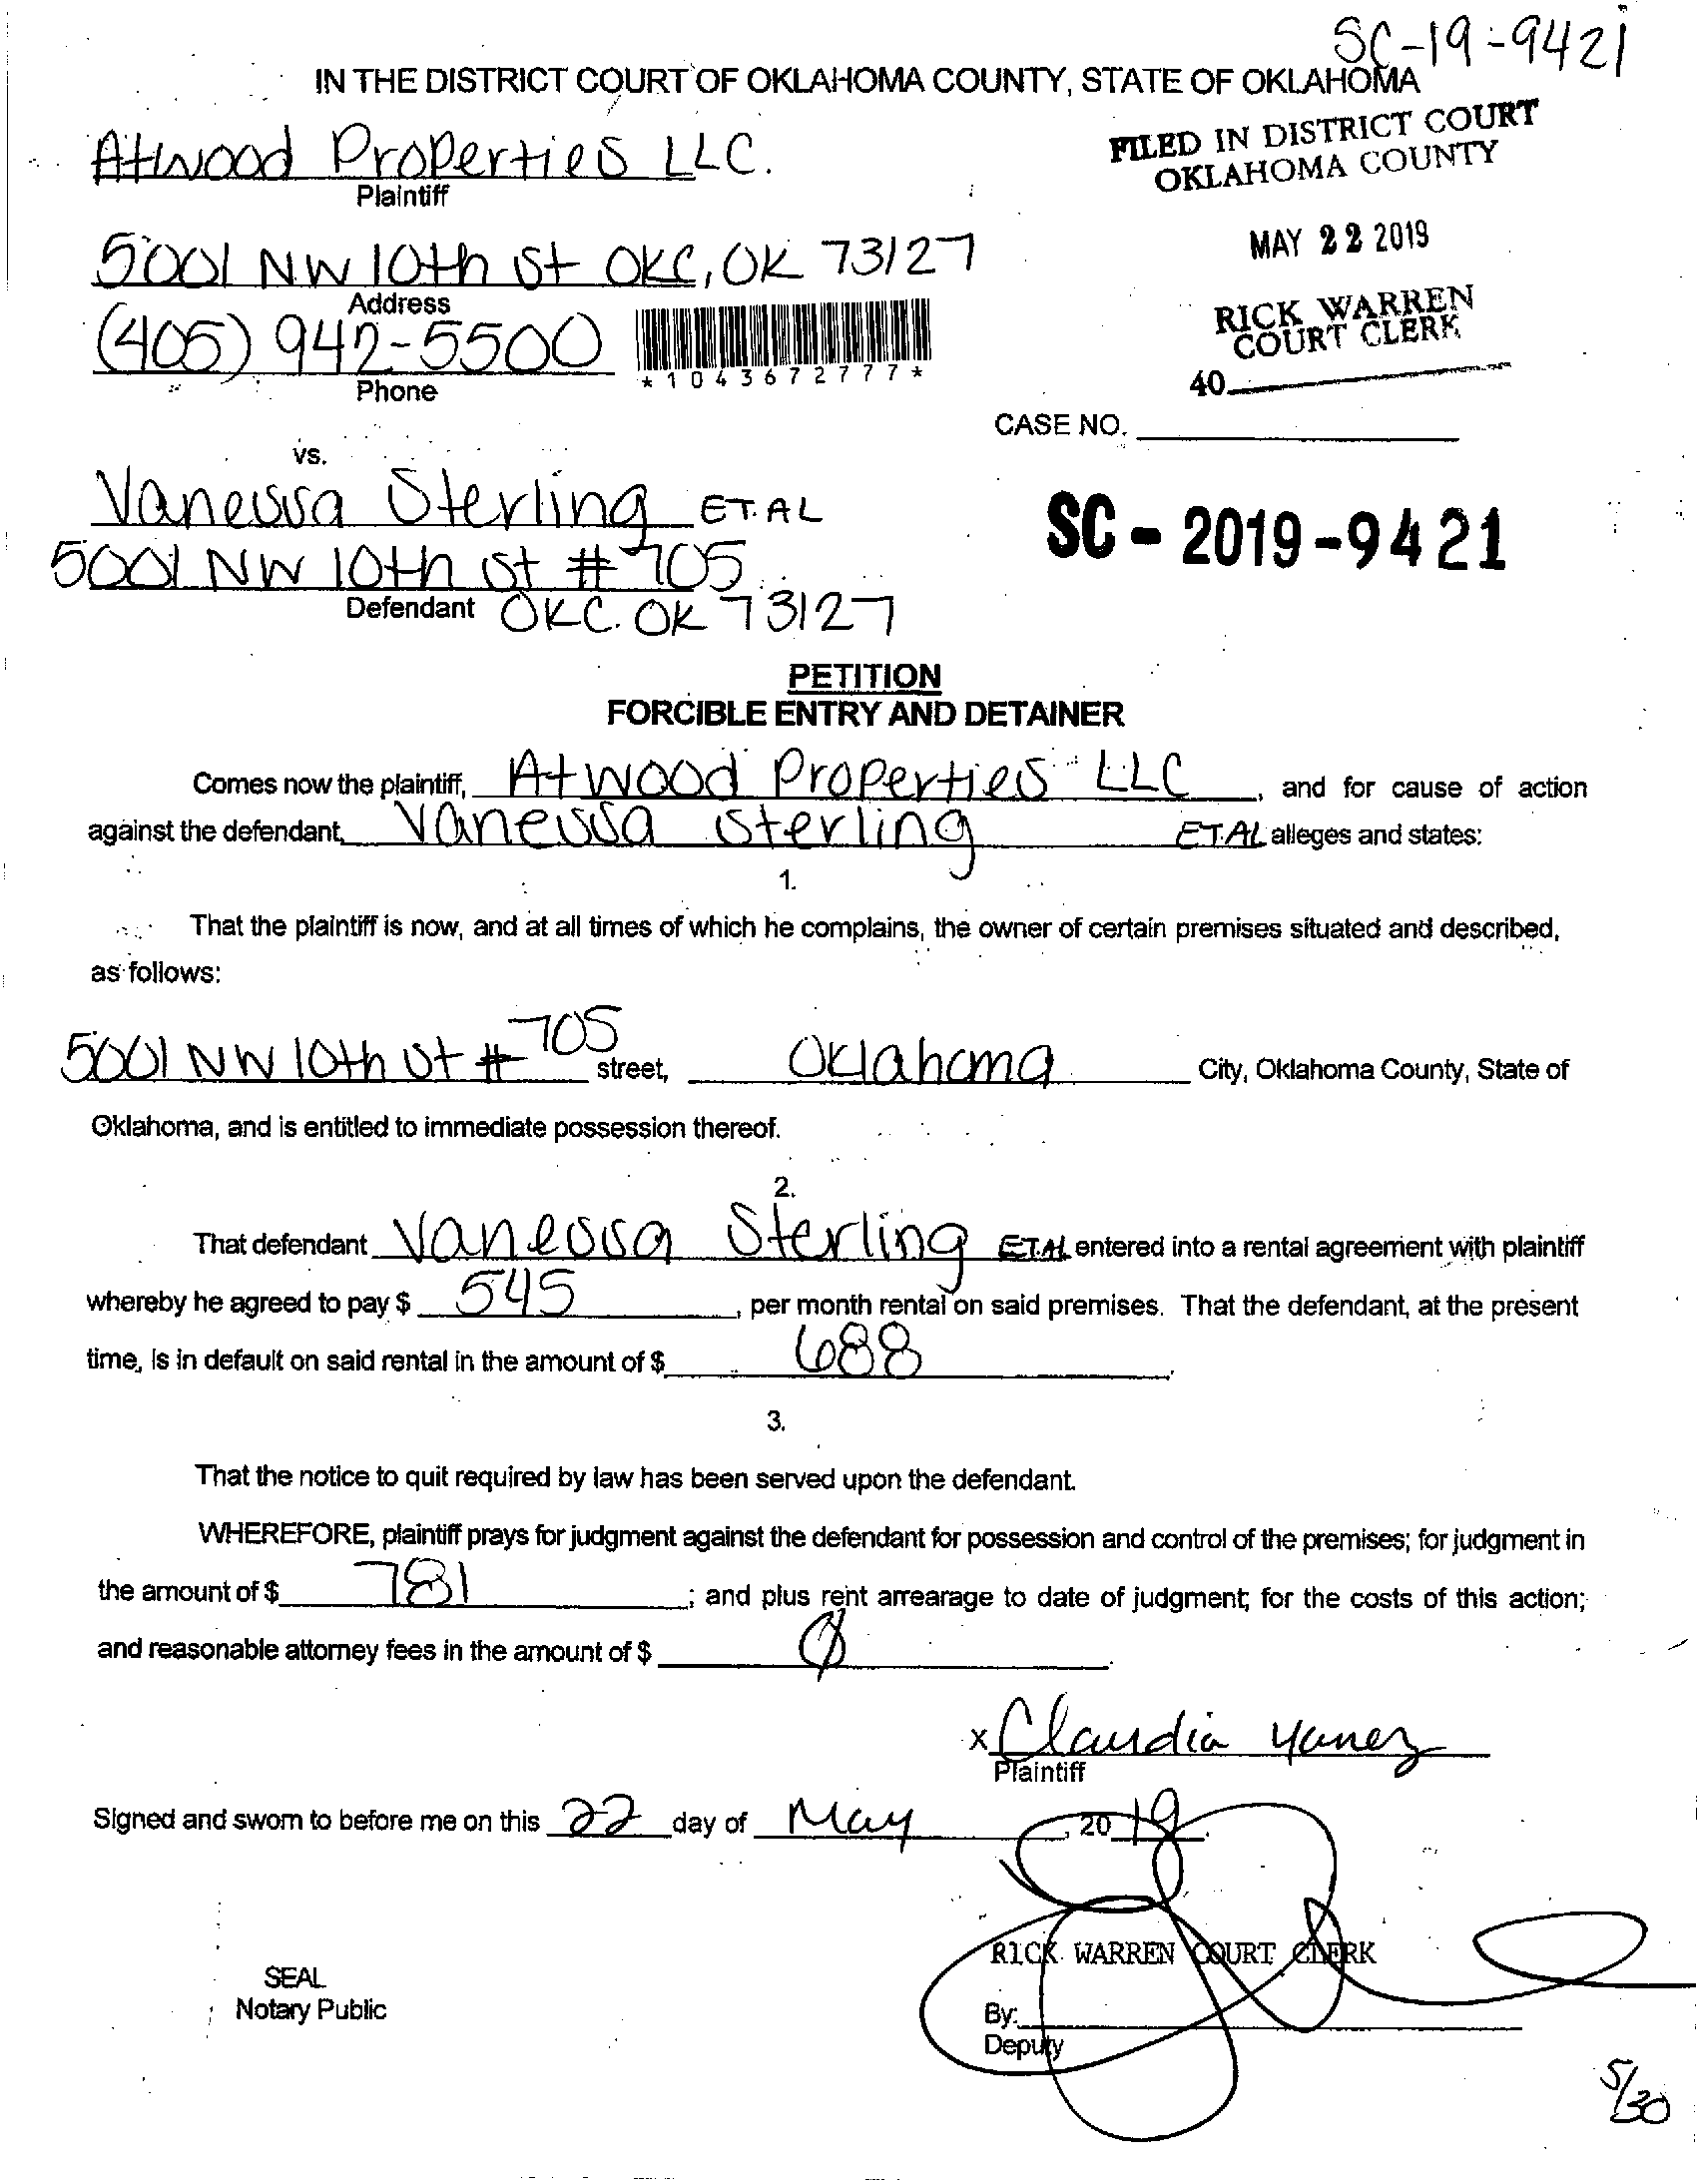 SC-19-9421
IN THE DISTRICT COURT OF OKLAHOMA COUNTY, STATE OF OKLAHOMA
Atwood Properties LLC.
Plaintiff
FILED IN DISTRICT COURT
OKLAHOMA COUNTY
5001 NW 10th St OKC, OK 73127
Address
MAY 22 2019
(405) 942-5500
Phone
*1043672777*
RICK WARREN
COURT CLERK
40
CASE NO.
vs.
Vanessa Sterling ET.AL
5001 NW 10th St # 705
Defendant OKC. OK 73127
SC - 2019 - 9421
PETITION
FORCIBLE ENTRY AND DETAINER
Comes now the plaintiff, Atwood Properties LLC, and for cause of action
against the defendant, Vanessa Sterling ET.AL alleges and states:
1.
That the plaintiff is now, and at all times of which he complains, the owner of certain premises situated and described,
as follows:
5001 NW 10th St # 705 street, Oklahoma City, Oklahoma County, State of
Oklahoma, and is entitled to immediate possession thereof.
2.
That defendant Vanessa Sterling ET.AL entered into a rental agreement with plaintiff
whereby he agreed to pay $ 545, per month rental on said premises. That the defendant, at the present
time, is in default on said rental in the amount of $ 688.
3.
That the notice to quit required by law has been served upon the defendant.
WHEREFORE, plaintiff prays for judgment against the defendant for possession and control of the premises; for judgment in
the amount of $ 781; and plus rent arrearage to date of judgment; for the costs of this action;
and reasonable attorney fees in the amount of $ Ø.
x Claudia Yanez
Plaintiff
Signed and sworn to before me on this 22 day of May, 2019.
RICK WARREN COURT CLERK
SEAL
Notary Public
By:
Deputy
5/30